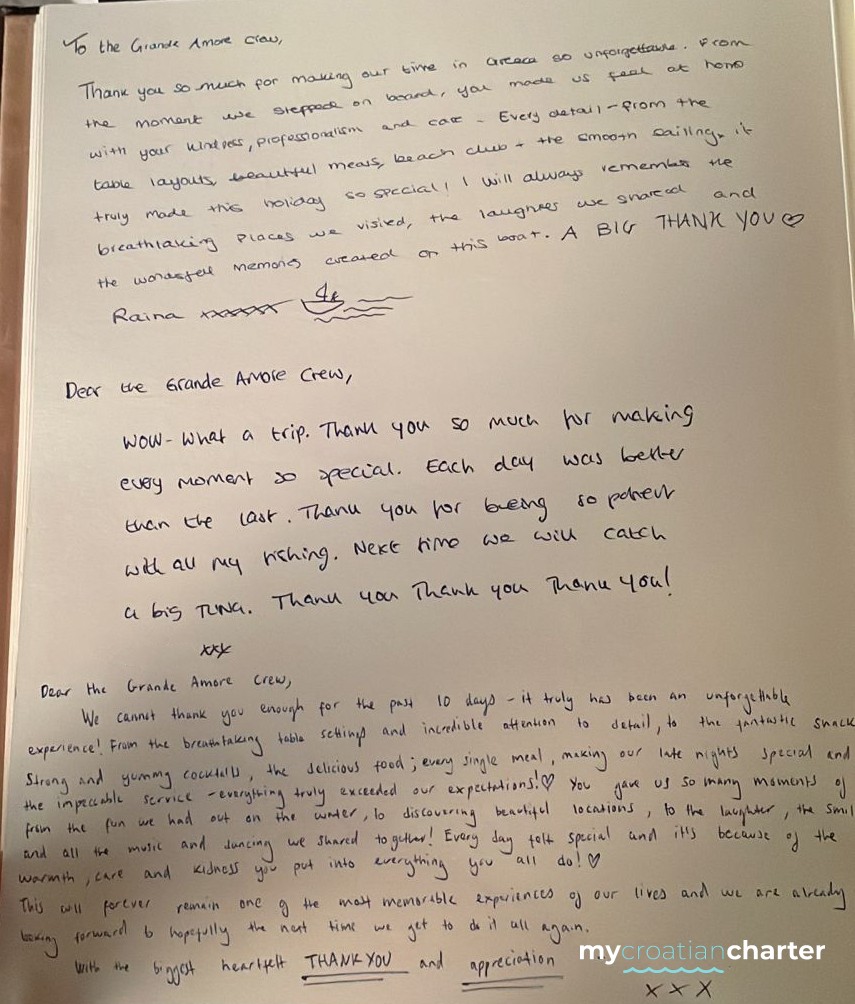 To the Grande Amore Crew,
Thank you so much for making our time in Greece so unforgettable. From
the moment we stepped on board, you made us feel at home
with your kindness, professionalism and care - Every detail - from the
table layouts, beautiful meals, beach club + the smooth sailing, it
truly made this holiday so special! I will always remember the
breathtaking places we visited, the laughter we shared and
the wonderful memories created on this boat. A BIG THANK YOU ♡
Raina xxxxxx
Dear the Grande Amore Crew,
WOW - What a trip. Thank you so much for making
every moment so special. Each day was better
than the last. Thank you for being so patient
with all my fishing. Next time we will catch
a big TUNA. Thank you Thank you Thank you!
xxx
Dear the Grande Amore Crew,
We cannot thank you enough for the past 10 days - it truly has been an unforgettable
experience! From the breathtaking table settings and incredible attention to detail, to the fantastic snack
strong and yummy cocktails, the delicious food; every single meal, making our late nights special and
the impeccable service - everything truly exceeded our expectations! ♡ You gave us so many moments of
from the fun we had out on the water, to discovering beautiful locations, to the laughter, the smil
and all the music and dancing we shared together! Every day felt special and it's because of the
warmth, care and kidness you put into everything you all do! ♡
This will forever remain one of the most memorable experiences of our lives and we are already
looking forward to hopefully the next time we get to do it all again.
With the biggest heartfelt THANK YOU and appreciation
mycroatiancharter
x x x